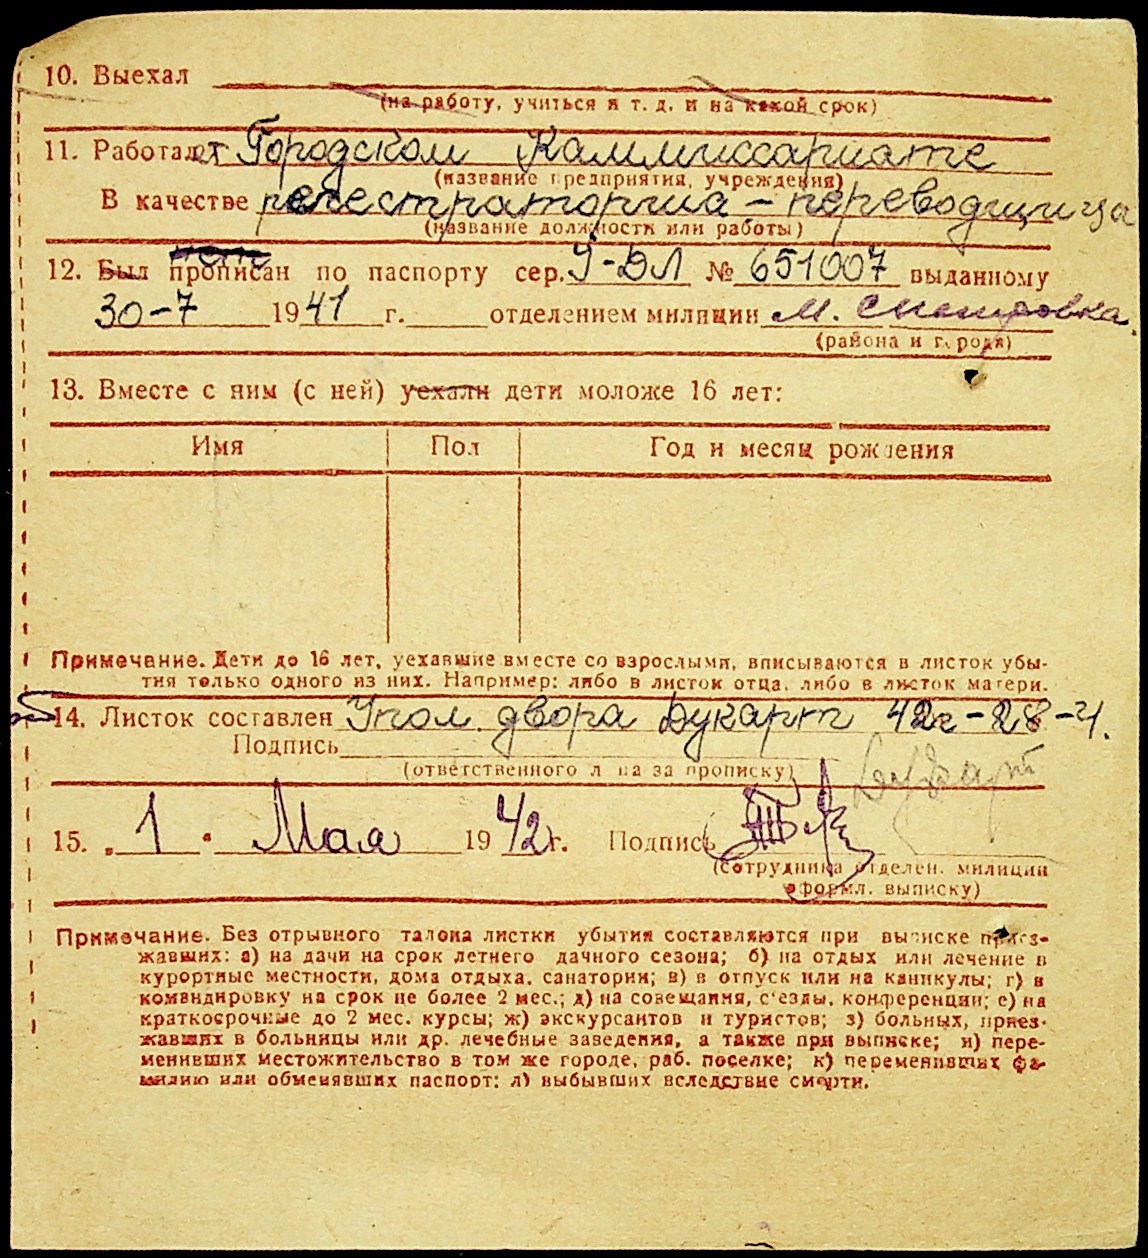 10. Выехал
(на работу, учиться и т. д. и на какой срок)
11. Работает Городском Каммиссариате
(название предприятия, учреждения)
В качестве регестраторша – переводщица
(название должности или работы)
12. Был прописан по паспорту сер. У-ДЛ № 651007 выданному
30-7 1941 г. отделением милиции м.
(района и города)
13. Вместе с ним (с ней) уехали дети моложе 16 лет:
Имя Пол Год и месяц рождения
Примечание. Дети до 16 лет, уехавшие вместе со взрослыми, вписываются в листок убы-
тия только одного из них. Например: либо в листок отца, либо в листок матери.
14. Листок составлен Упол. двора Дукарт 42г-28-4.
Подпись
(ответственного лица за прописку)
15. „ 1 " Мая 1942г. Подпись
(сотрудника отделен. милиции
оформл. выписку)
Примечание. Без отрывного талона листки убытия составляются при выписке приез-
жавших: а) на дачи на срок летнего дачного сезона; б) на отдых или лечение в
курортные местности, дома отдыха, санатории; в) в отпуск или на каникулы; г) в
командировку на срок не более 2 мес.; д) на совещания, с'езды, конференции; е) на
краткосрочные до 2 мес. курсы; ж) экскурсантов и туристов; з) больных, приез-
жавших в больницы или др. лечебные заведения, а также при выписке; и) пере-
менивших местожительство в том же городе, раб. поселке; к) переменивших фа-
милию или обменявших паспорт; л) выбывших вследствие смерти.